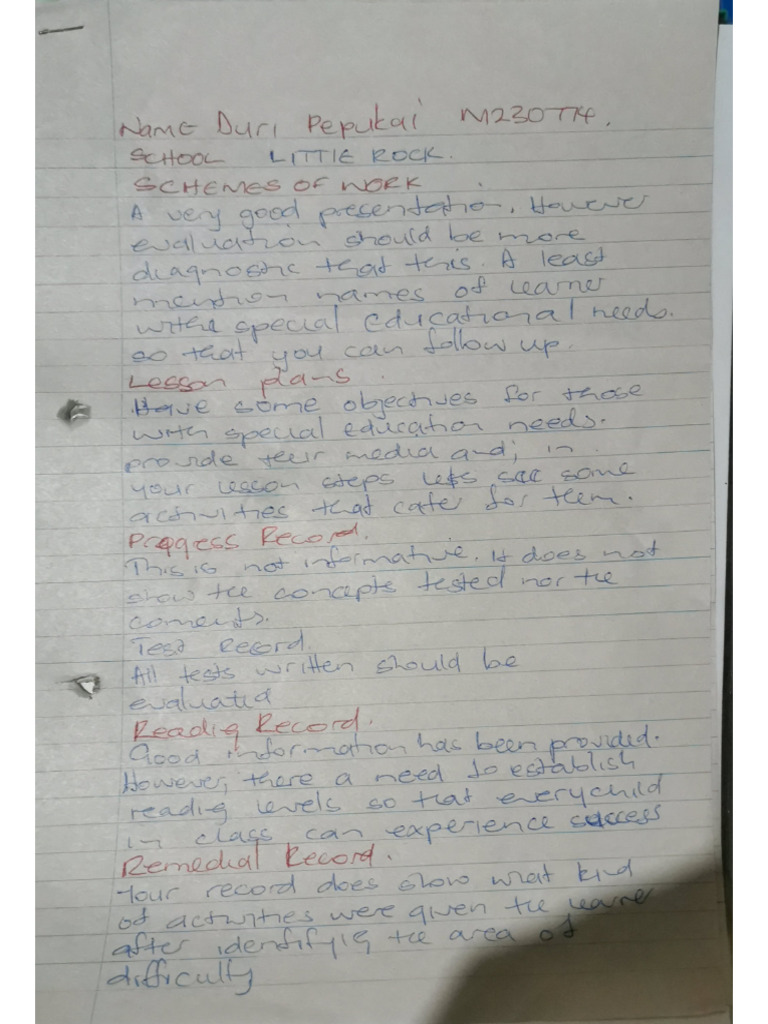 Name Duri Pepukai M230774.
SCHOOL LITTIE ROCK.
SCHEMES OF WORK
A very good presentation. However
evaluation should be more
diagnostic that this. A least
mention names of learner
withe special educational needs.
so that you can follow up.
Lesson plans.
Have some objectives for those
with special education needs.
provide teir media and; in
your lesson steps lets see some
activities that cater for tem.
Progess Record.
This is not informative. It does not
show tee concepts tested nor tee
coments.
Test Record.
All tests written should be
evaluated
Readig Record.
Good information has been provided.
However, there a need to establish
readig levels so that every child
in class can experience success
Remedial Record.
Your record does show what kind
of activities were given tee learner
after identifyig tee area of
difficulty